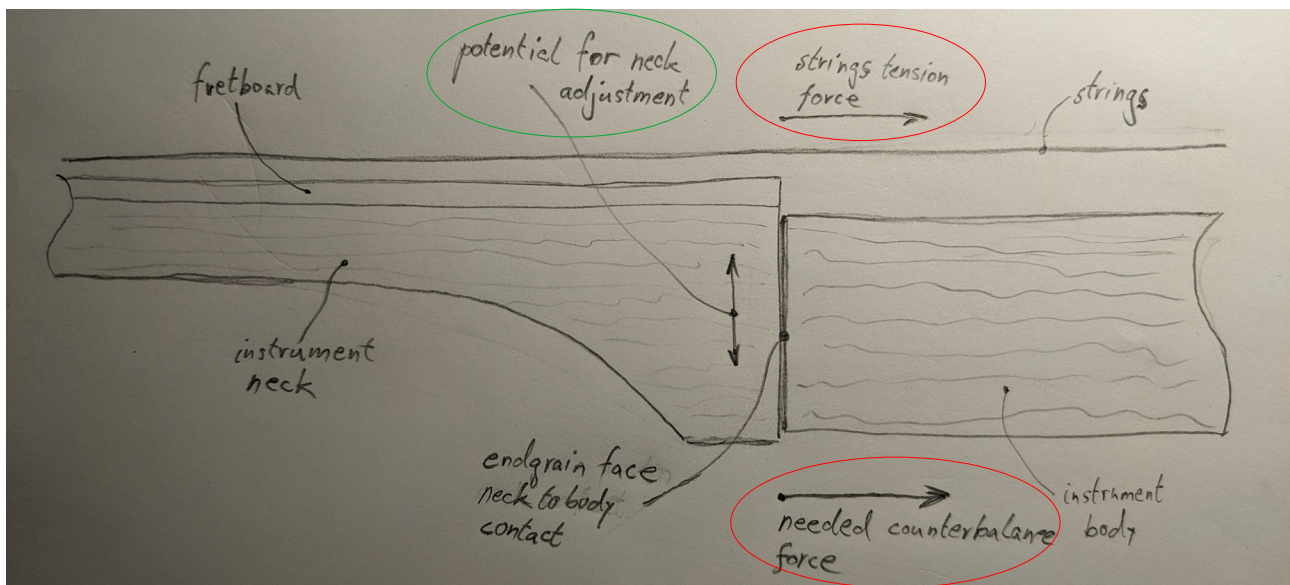 fretboard
potential for neck
adjustment
strings tension
force
strings
instrument
neck
endgrain face
neck to body
contact
needed counterbalance
force
instrument
body